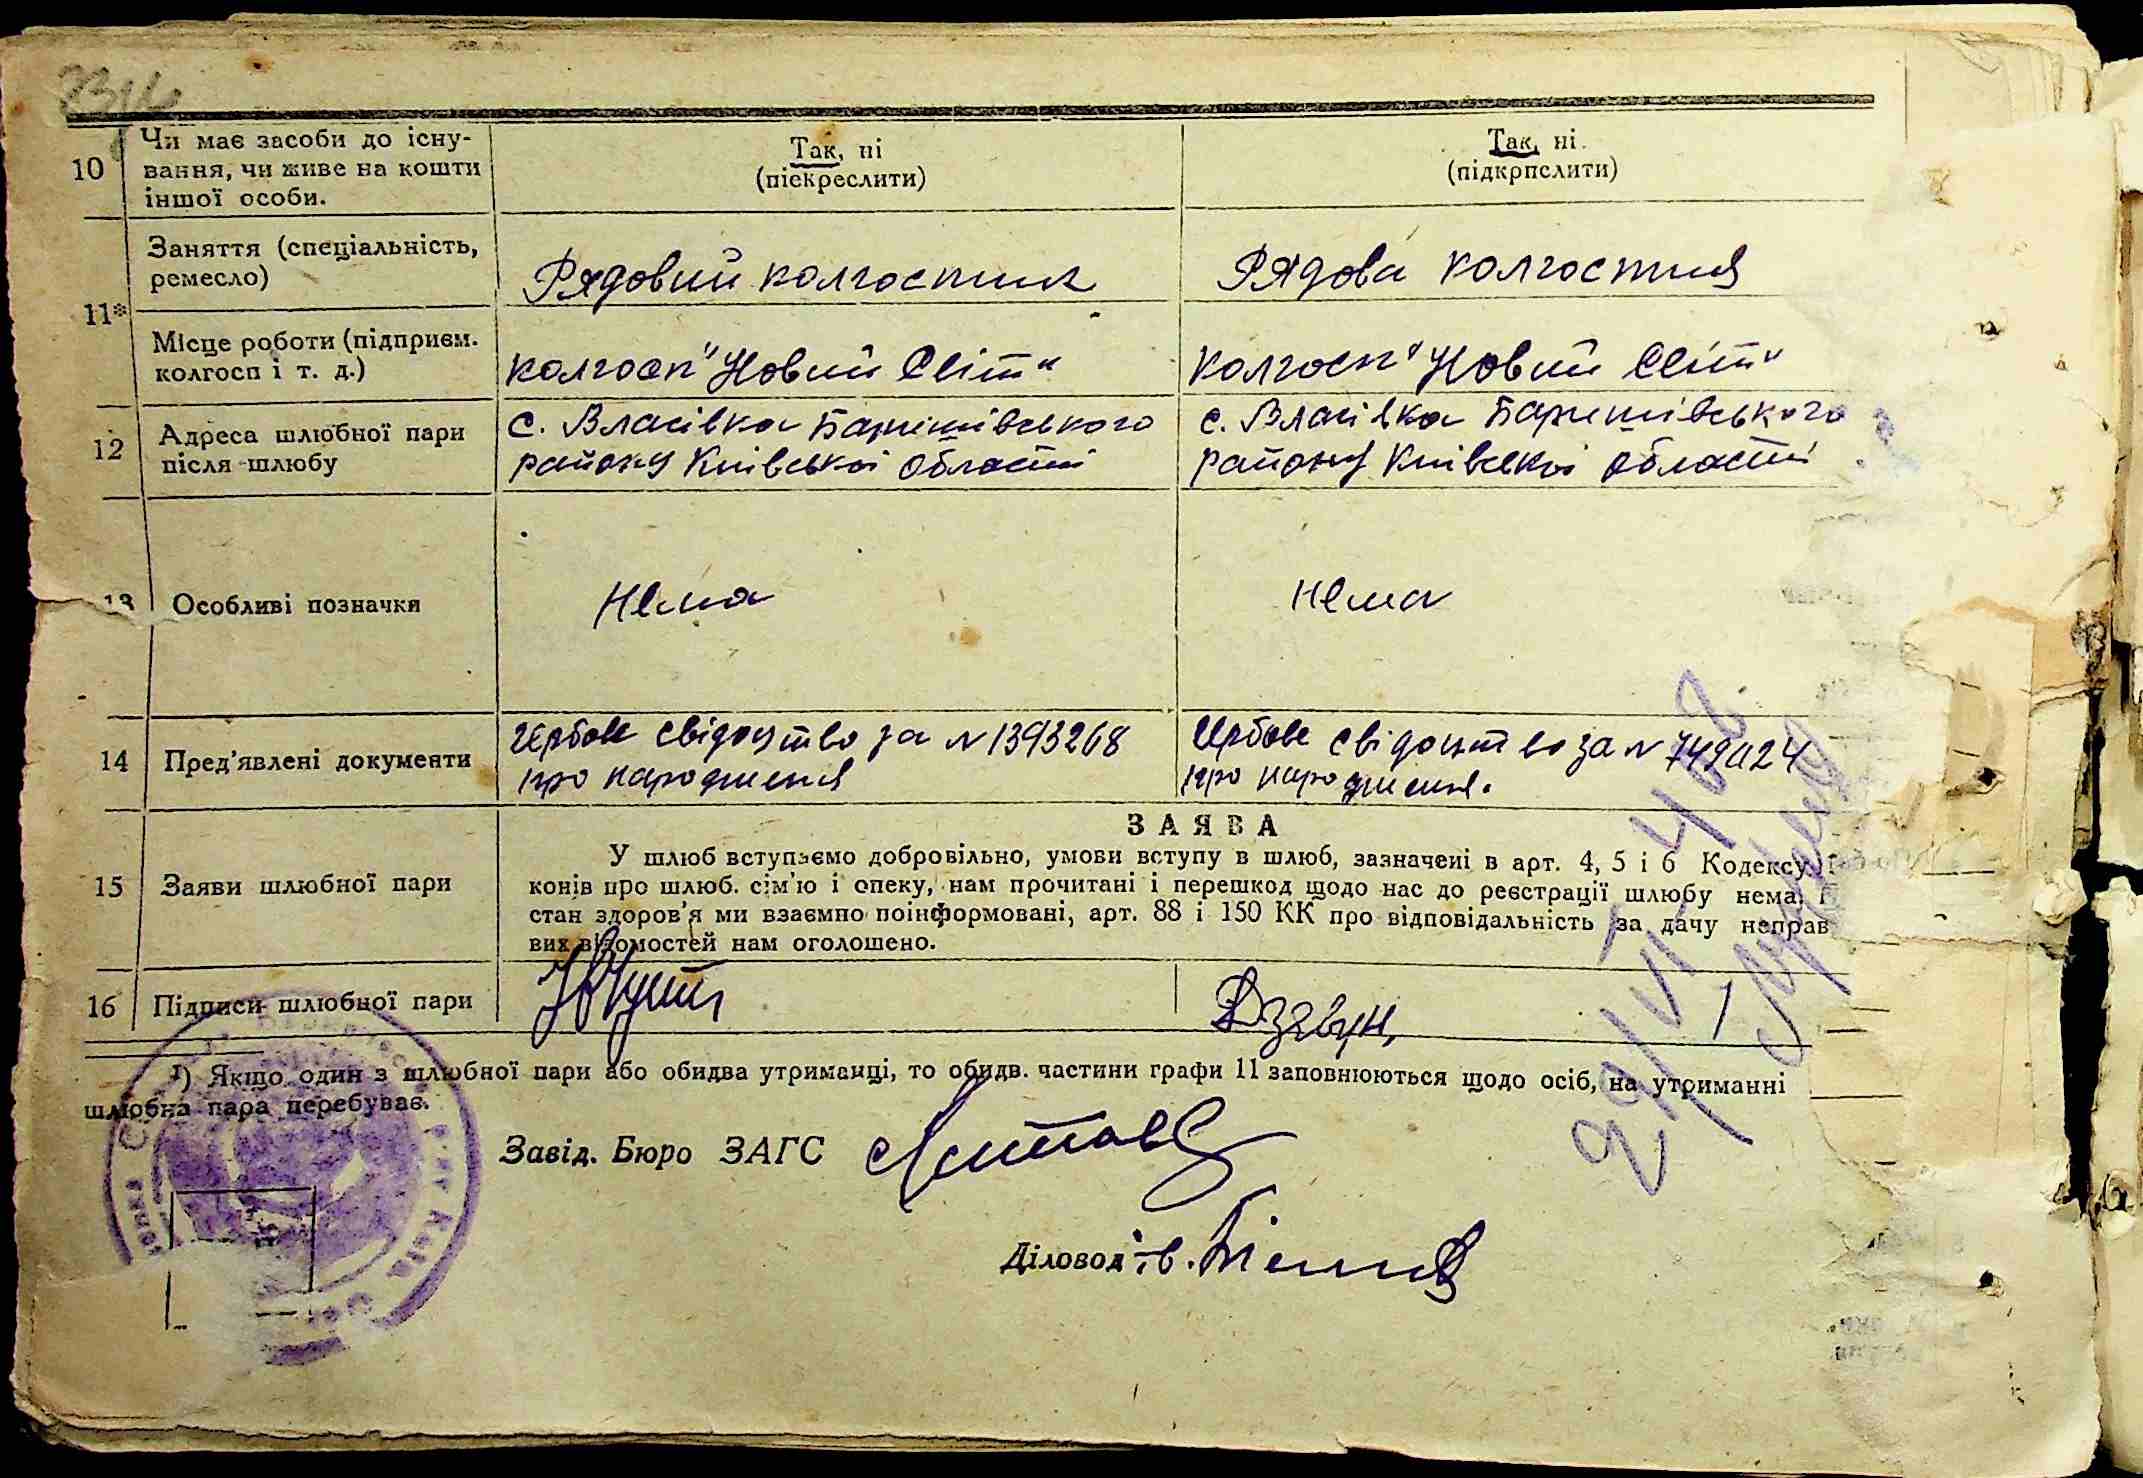 10
Чи має засоби до існу-
вання, чи живе на кошти
іншої особи.
Так, ні
(піекреслити)
Так, ні.
(підкрпслити)
11*
Заняття (спеціальність,
ремесло)
Рядовий колгоспник
Рядова колгоспниця
Місце роботи (підприєм.
колгосп і т. д.)
колгосп "Новий Світ"
колгосп "Новий Світ"
12
Адреса шлюбної пари
після шлюбу
с. Власівка Баришівського
району Київської області
с. Власівка Баришівського
району Київської області
13
Особливі позначки
Нема
Нема
14
Пред'явлені документи
Гербове свідоцтво за N 1393268
про народження
Гербове свідоцтво за N
про народження.
15
Заяви шлюбної пари
ЗАЯВА
У шлюб вступаємо добровільно, умови вступу в шлюб, зазначені в арт. 4, 5 і 6 Кодексу
конів про шлюб. сім'ю і опеку, нам прочитані і перешкод щодо нас до реєстрації шлюбу нема,
стан здоров'я ми взаємно поінформовані, арт. 88 і 150 КК про відповідальність за дачу неправ
вих відомостей нам оголошено.
16
Підписи шлюбної пари
Дзявун
¹) Якщо один з шлюбної пари або обидва утриманці, то обидв. частини графи 11 заповнюються щодо осіб, на утриманні
шлюбна пара перебуває.
Завід. Бюро ЗАГС
Діловод